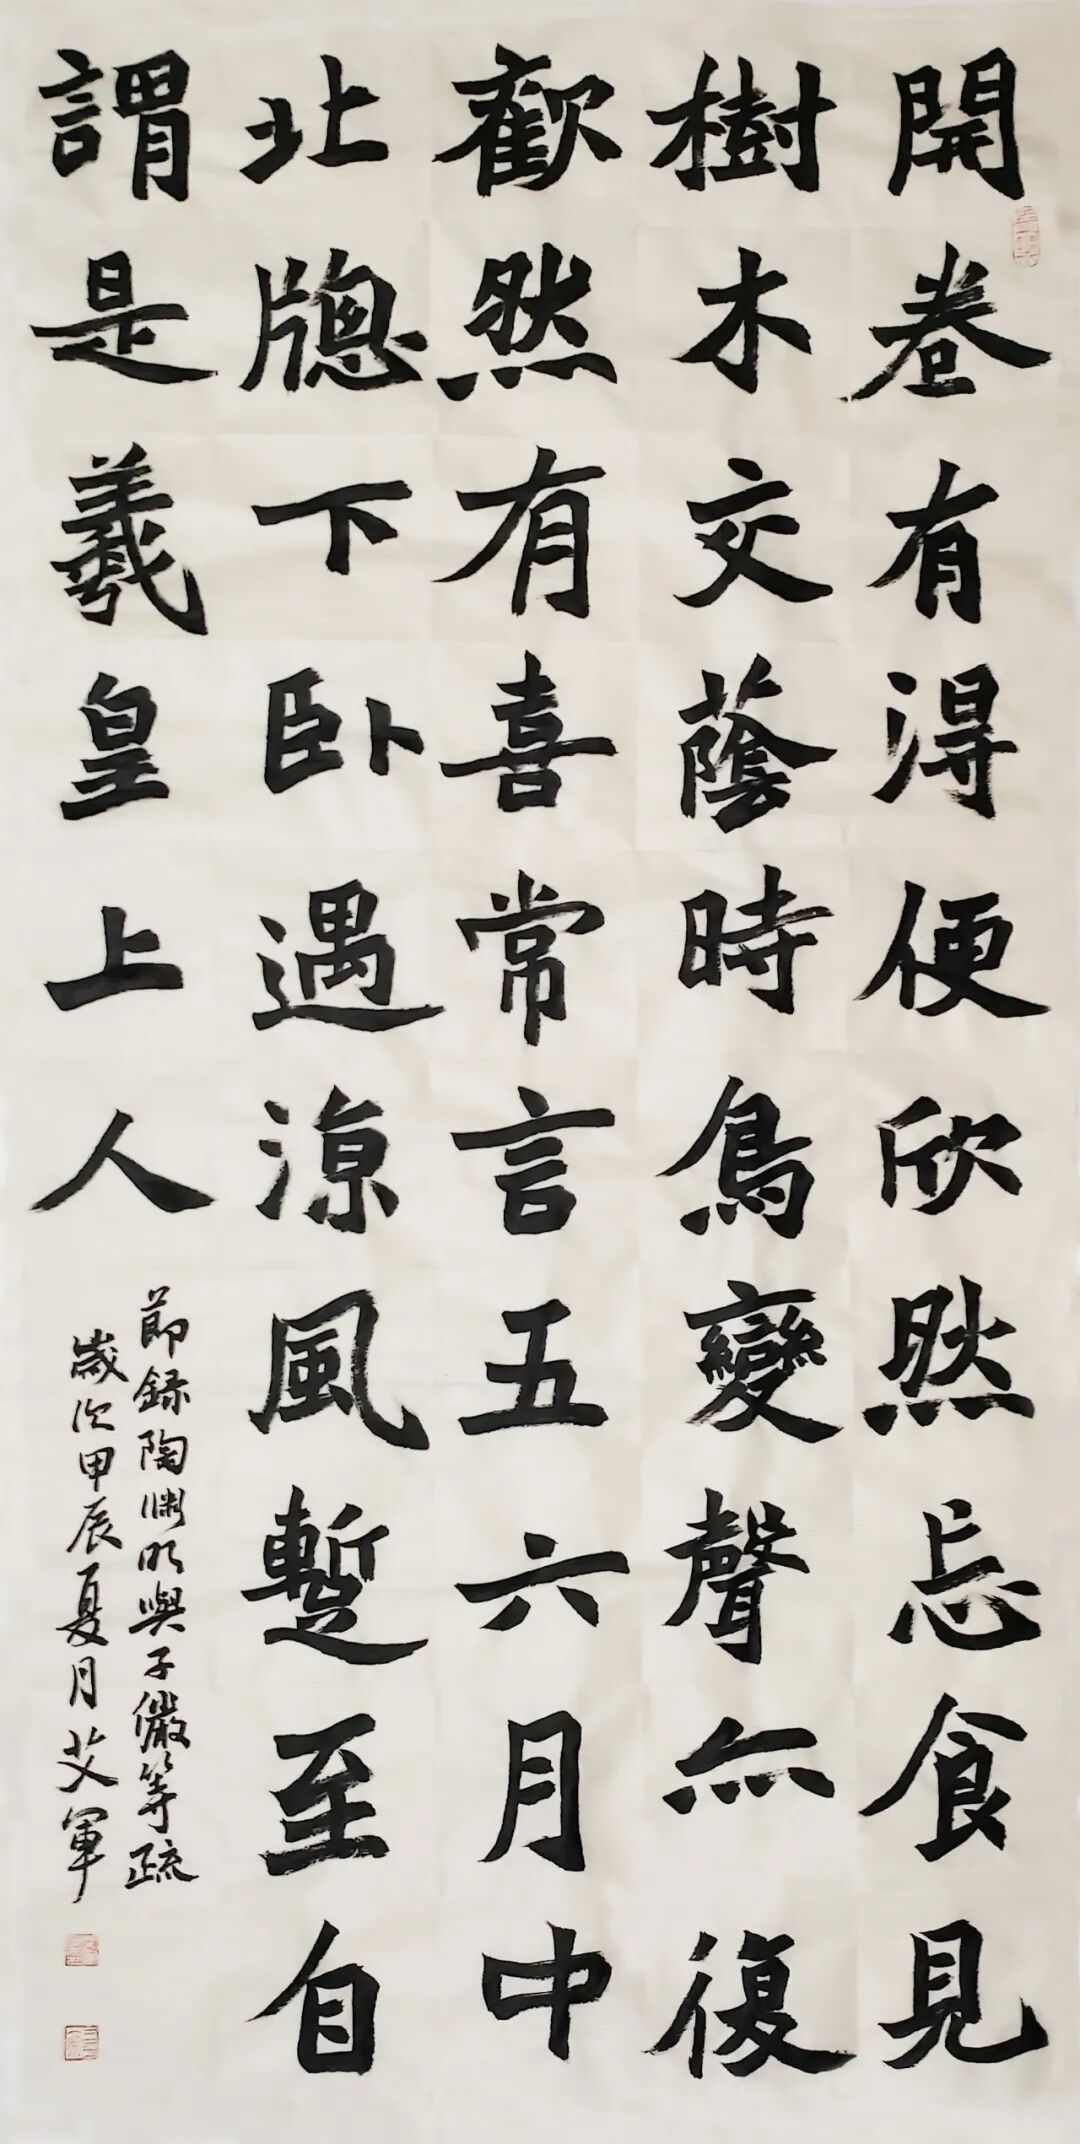 開卷有得便欣然忘食見
樹木交蔭時鳥變聲亦復
歡然有喜常言五六月中
北牎下卧遇涼風暫至自
謂是羲皇上人
節録陶淵明與子儼等疏
歲次甲辰夏月艾軍